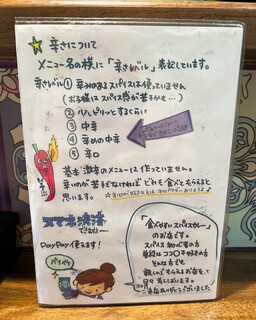 辛さについて
メニュー名の横に「辛さレベル」表記しています。
辛さレベル① 辛みのあるスパイスは使っていません
(お子様にスパイス感が苦手かも…)
② ピリッとするくらい
③ 中辛
④ 辛めの中辛
⑤ 辛口
基本 激辛のメニューは作っていません。
辛いのが苦手でなければ どれも食べてもらえると
思います。
スマホ決済
できます
PayPay使えます!
ペイペイ
「食べやすいスパイスカレー」
のお店です。
スパイス初心者の方
普段はココ〇千好きの方
そんな方でも
親しんでもらえるお店として
日々 頑張ります
ご来店ありがとうございました